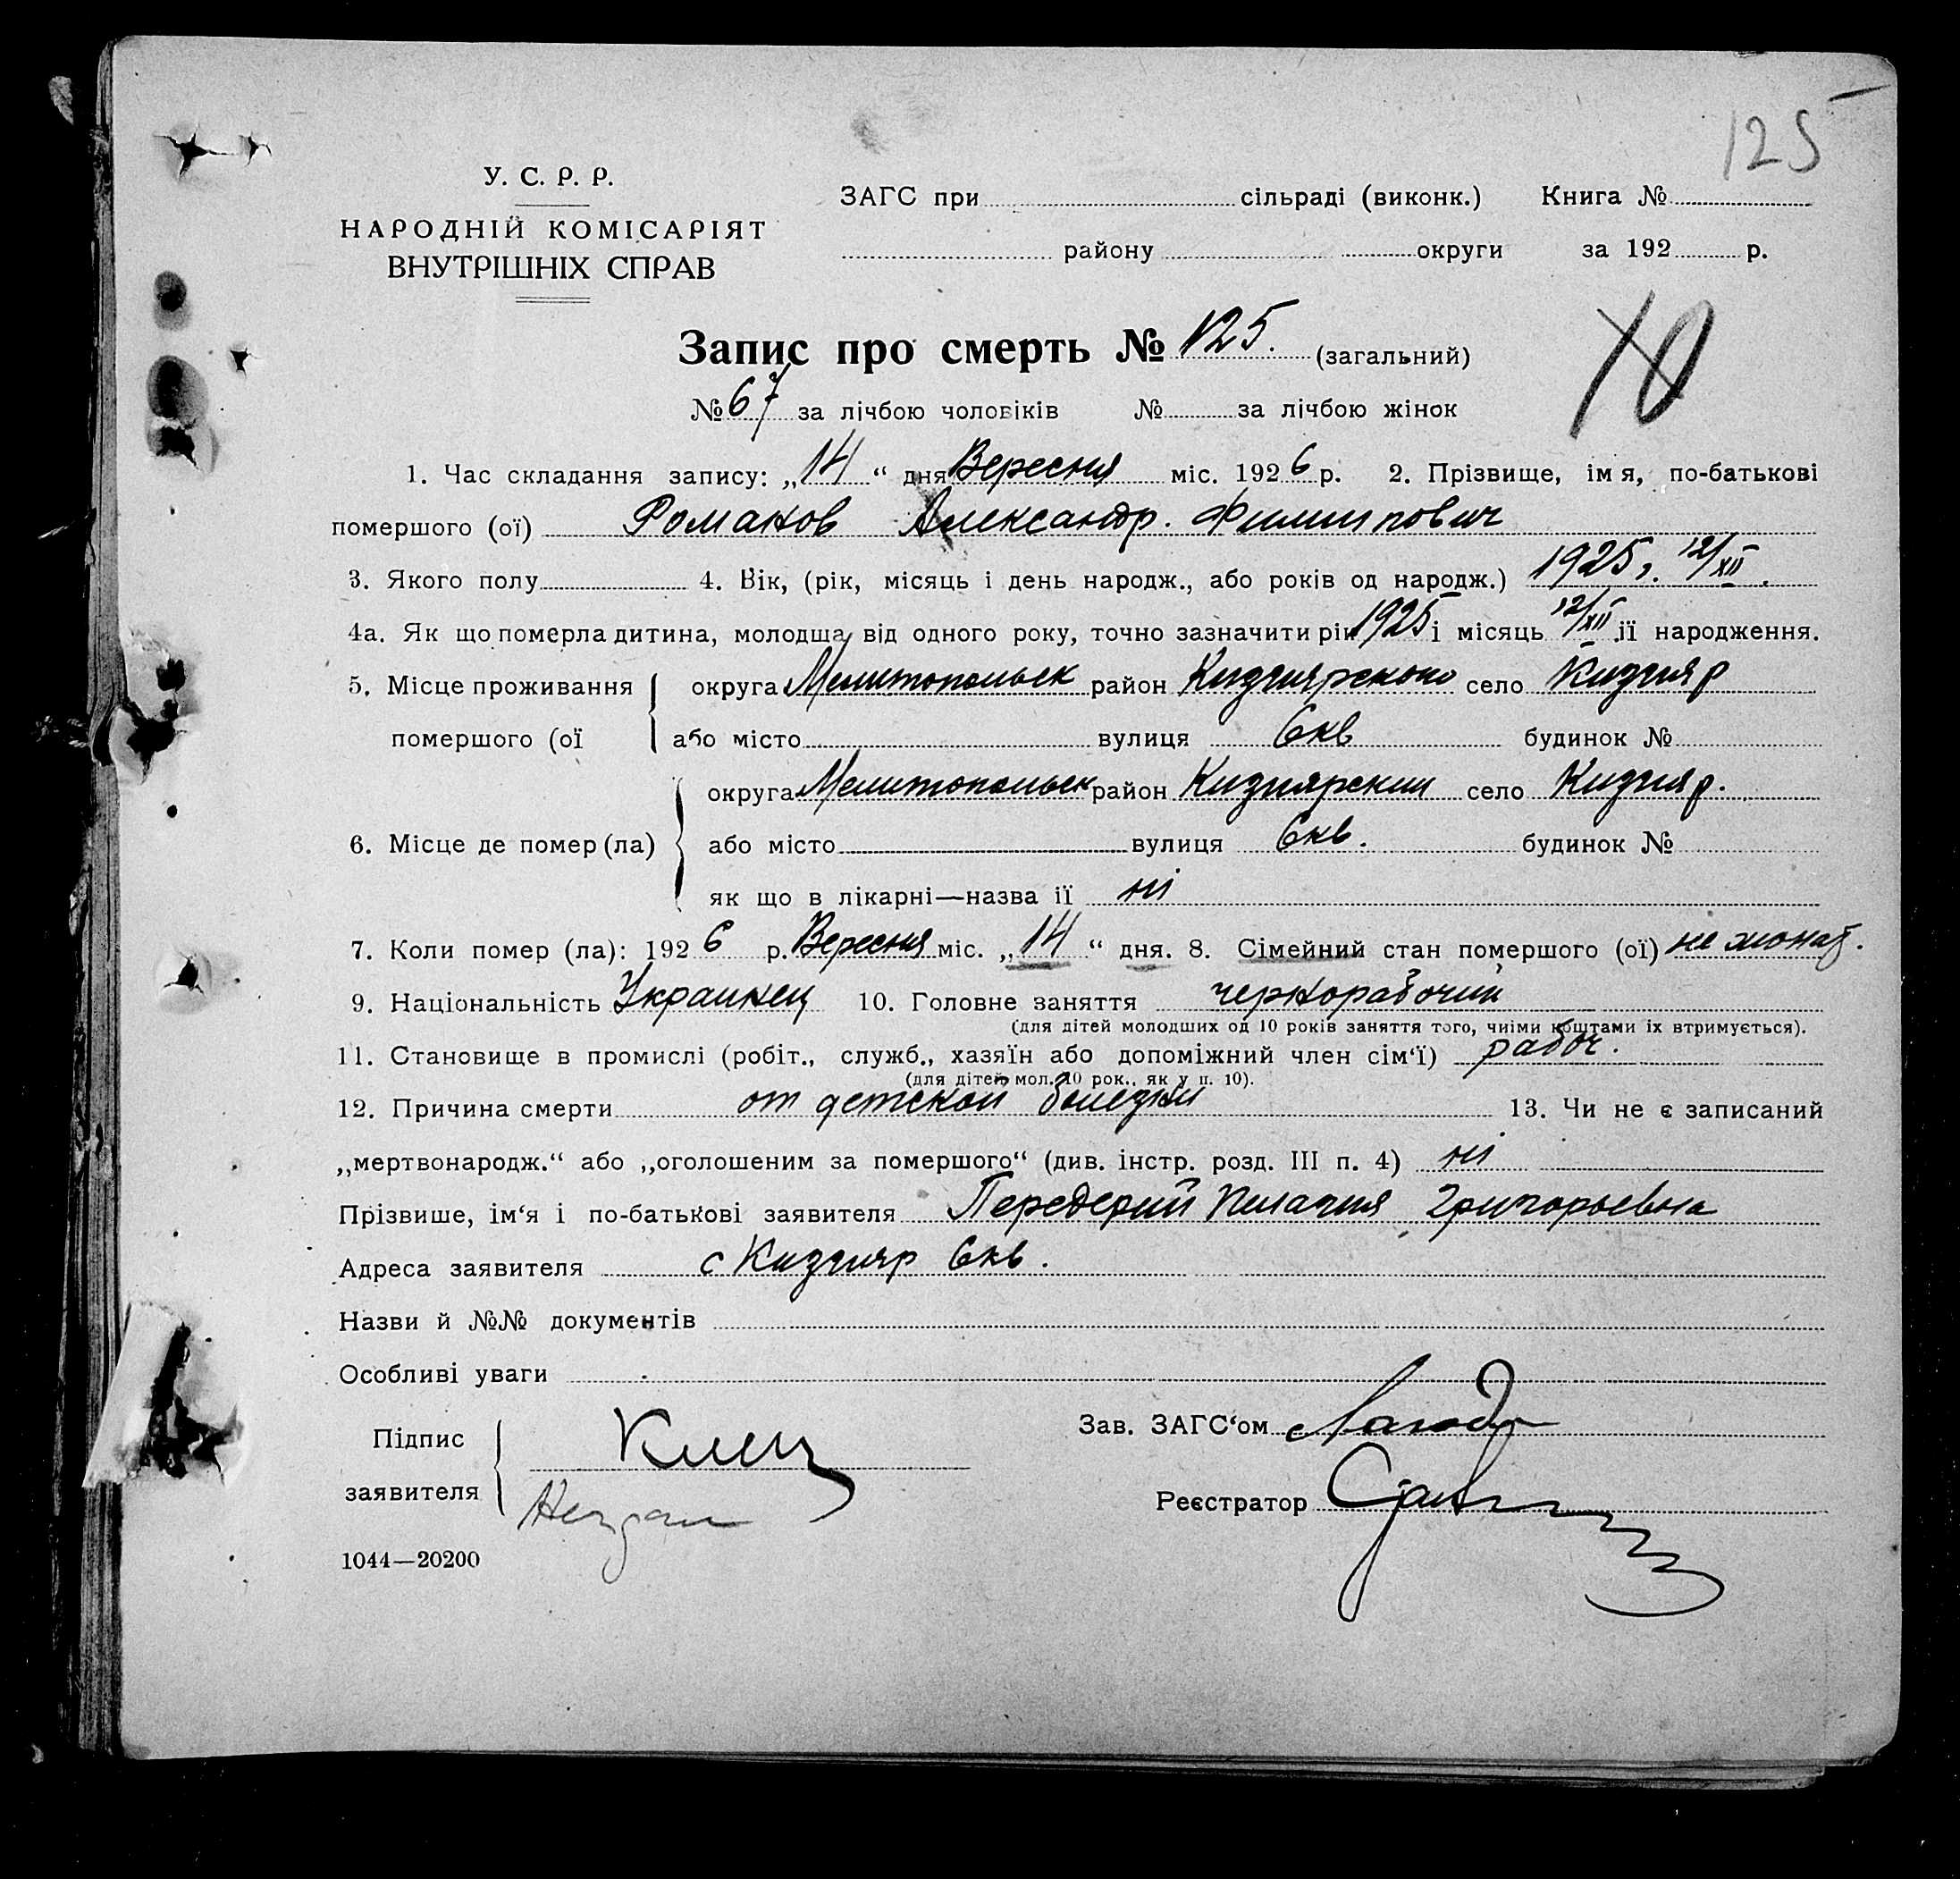 125
У. С. Р. Р.
НАРОДНІЙ КОМІСАРІЯТ
ВНУТРІШНІХ СПРАВ
ЗАГС при сільраді (виконк.) Книга №
району округи за 192 р.
Запис про смерть № 125. (загальний)
10
№ 67 за лічбою чоловіків № за лічбою жінок
1. Час складання запису: „14“ дня Вересня міс. 1926 р. 2. Прізвище, імя, по-батькові
помершого (ої) Романов Александр. Филиппович
3. Якого полу 4. Вік, (рік, місяць і день народж., або років од народж.) 1925 г. 12/XII.
4а. Як що померла дитина, молодша від одного року, точно зазначити рік 1925 і місяць 12/XII її народження.
5. Місце проживання округа Мелитопольск район Кизиярского село Кизияр
помершого (ої або місто вулиця 6кв будинок №
округа Мелитопольск район Кизиярский село Кизияр.
6. Місце де помер (ла) або місто вулиця 6кв. будинок №
як що в лікарні—назва її ні
7. Коли помер (ла): 1926 р. Вересня міс. „14“ дня. 8. Сімейний стан помершого (ої) не жонат.
9. Національність Украинец 10. Головне заняття чернорабочий
(для дітей молодших од 10 років заняття того, чиїми коштами їх втримується).
11. Становище в промислі (робіт., служб., хазяїн або допоміжний член сім‘ї) рабоч.
(для дітей мол. 10 рок., як у п. 10).
12. Причина смерти от детской болезни 13. Чи не є записаний
„мертвонародж.“ або „оголошеним за помершого“ (див. інстр. розд. III п. 4) ні
Прізвише, ім‘я і по-батькові заявителя Передерий Пелагия Григорьевна
Адреса заявителя с Кизияр 6кв.
Назви й №№ документів
Особливі уваги
Підпис
заявителя
Зав. ЗАГС‘ом
Реєстратор
1044—20200